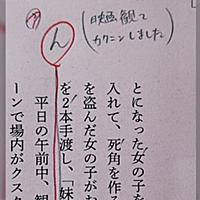 (映画観て
カクニンしました)
ん
とになった女の子を
入れて、死角を作る
を盗んだ女の子がお
を2本手渡し、「妹
平日の午前中、観
ーンで場内がクスク